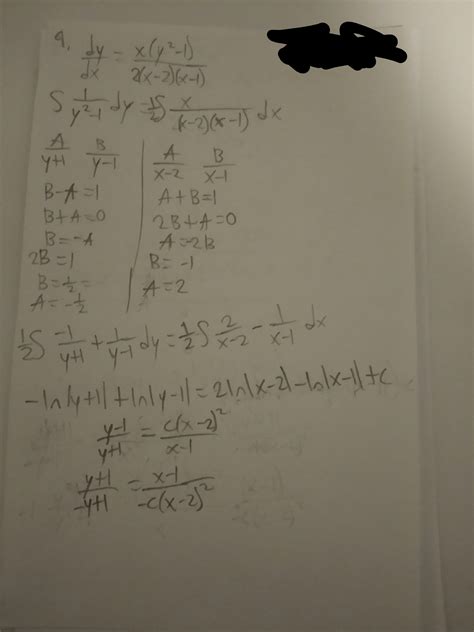 9. dy/dx = x(y²-1)/2(x-2)(x-1)
∫ 1/y²-1 dy = 1/2 ∫ x/(x-2)(x-1) dx
A/y+1 B/y-1 | A/x-2 B/x-1
B-A=1 | A+B=1
B+A=0 | 2B+A=0
B=-A | A=-2B
2B=1 | B=-1
B=1/2= | A=2
A=-1/2
1/2 ∫ -1/y+1 + 1/y-1 dy = 1/2 ∫ 2/x-2 - 1/x-1 dx
-ln|y+1|+ln|y-1|=2ln|x-2|-ln|x-1|+c
y-1/y+1 = c(x-2)²/x-1
y+1/-y+1 = x-1/-c(x-2)²